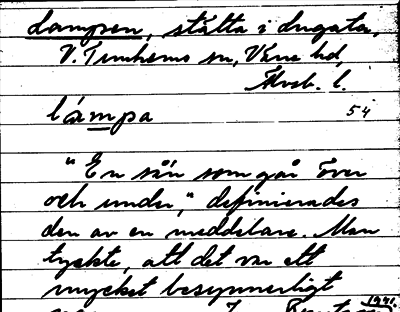 Lampen, ställa i dugata,
V. Tunhems sn, Väne hd,
Älvsb. l.
lámpa 54
"En sån som går över
och under", definierades
den av en meddelare. Man
tyckte, att det var ett
mycket besynnerligt
1941.